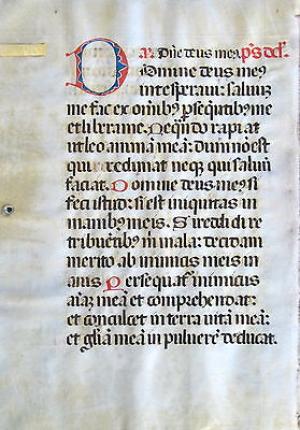 Dñe deus me⁹ p̃s dd.
Domine deus me⁹
inte speravi: salvũ
me fac ex om̃ib⁹ p̃sequẽtib⁹ me
et libera me. Nequãdo rapiat
ut leo animã meã: dum nõ est
qui redimat neq; qui salvũ
faciat. Domine deus me⁹ si
feci istud: si est iniquitas in
manib⁹ meis. Si reddidi re
tribuẽtib⁹ m̃ mala: decidam
merito ab inimicis meis in
anis. Persequať inimicus
aĩaz meã et comprehendat:
et conculcet in terra vitã meã:
et gl̃iã meã in pulverẽ deducat.